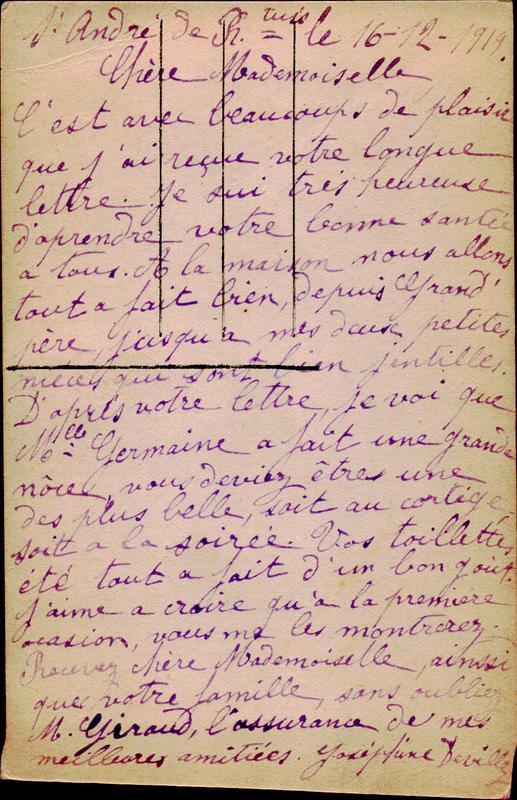 St André de R. tuis = le 16-12-1919.
Chère Mademoiselle
C'est avec beaucoups de plaisir
que j'ai reçue votre longue
lettre. Je sui très heureuse
d'aprendre votre bonne santée
a tous. A la maison nous allons
tout a fait bien, depuis Grand'
père, jusqu'a mes deux petites
nieces qui sont bien jentilles.
D'après votre lettre, je voi que
Melle Germaine a fait une grande
nôce, vous deviez êtres une
des plus belle, soit au cortège,
soit a la soirée. Vos toillettes
été tout a fait d'un bon gout.
J'aime a croire qu'à la premiere
ocasion, vous me les montrerez.
Recevez chère Mademoiselle, ainssi
que votre famille, sans oublier
M. Giraud, l'assurance de mes
meilleures amitiées. Joséphine